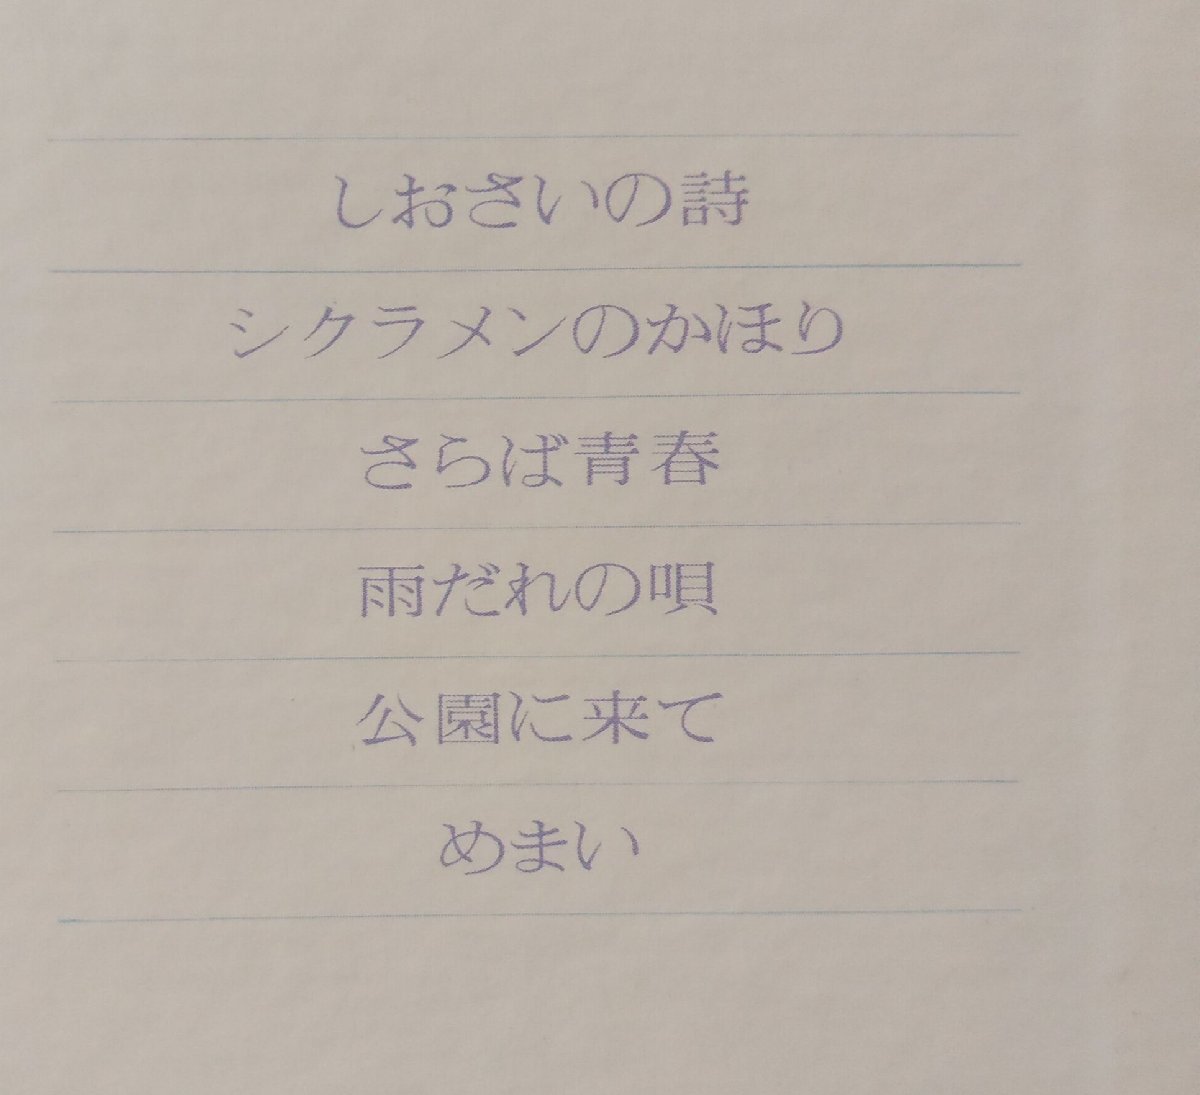 しおさいの詩
シクラメンのかほり
さらば青春
雨だれの唄
公園に来て
めまい